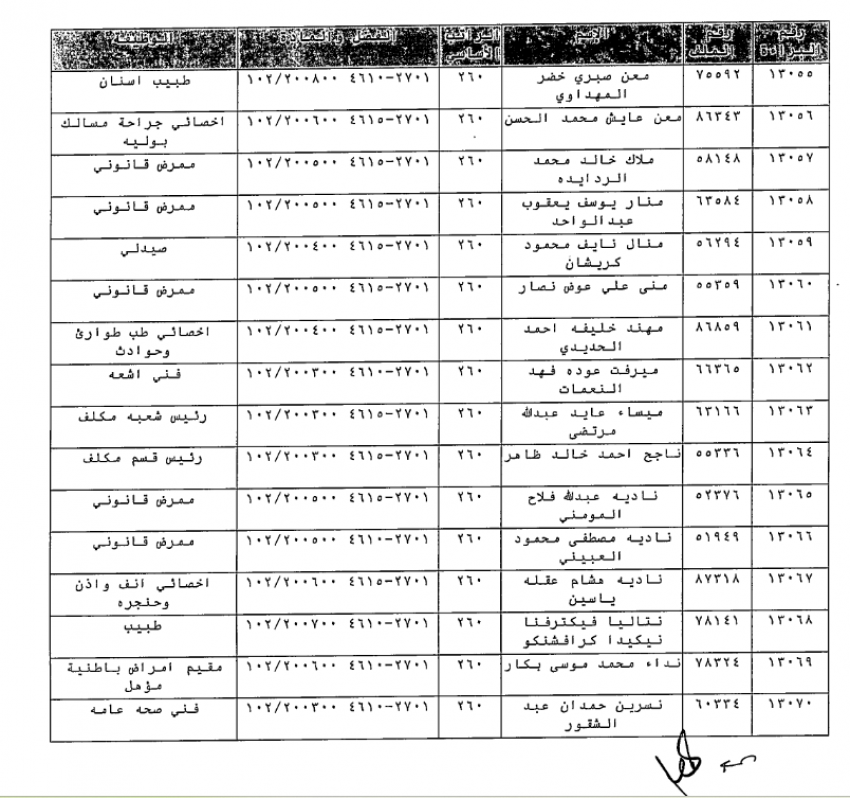 رقم البراءة رقم الملف الإسم الراتب الأساسي الفصل والمادة الوظيفة
١٣٠٥٥ ٧٥٥٩٢ معن صبري خضر ٢٦٠ ٤٦١٠-٢٧٠١ ١٠٢/٢٠٠٨٠٠ طبيب اسنان
المهداوي
١٣٠٥٦ ٨٦٣٤٣ معن عايش محمد الحسن ٢٦٠ ٤٦١٥-٢٧٠١ ١٠٢/٢٠٠٦٠٠ اخصائي جراحة مسالك
بوليه
١٣٠٥٧ ٥٨١٤٨ ملاك خالد محمد ٢٦٠ ٤٦١٥-٢٧٠١ ١٠٢/٢٠٠٥٠٠ ممرض قانوني
الردايده
١٣٠٥٨ ٦٣٥٨٤ منار يوسف يعقوب ٢٦٠ ٤٦١٥-٢٧٠١ ١٠٢/٢٠٠٥٠٠ ممرض قانوني
عبدالواحد
١٣٠٥٩ ٥٦٢٩٤ منال نايف محمود ٢٦٠ ٤٦١٥-٢٧٠١ ١٠٢/٢٠٠٤٠٠ صيدلي
كريشان
١٣٠٦٠ ٥٥٣٥٩ منى علي عوض نصار ٢٦٠ ٤٦١٥-٢٧٠١ ١٠٢/٢٠٠٥٠٠ ممرض قانوني
١٣٠٦١ ٨٦٨٥٩ مهند خليفه احمد ٢٦٠ ٤٦١٥-٢٧٠١ ١٠٢/٢٠٠٤٠٠ اخصائي طب طوارئ
الحديدي وحوادث
١٣٠٦٢ ٦٦٣٦٥ ميرفت عوده فهد ٢٦٠ ٤٦١٠-٢٧٠١ ١٠٢/٢٠٠٣٠٠ فني اشعه
النعمات
١٣٠٦٣ ٦٣١٦٦ ميساء عايد عبدالله ٢٦٠ ٤٦١٥-٢٧٠١ ١٠٢/٢٠٠٣٠٠ رئيس شعبه مكلف
مرتضى
١٣٠٦٤ ٥٥٣٣٦ ناجح احمد خالد ظاهر ٢٦٠ ٤٦١٠-٢٧٠١ ١٠٢/٢٠٠٣٠٠ رئيس قسم مكلف
١٣٠٦٥ ٥٢٣٧٦ ناديه عبدالله فلاح ٢٦٠ ٤٦١٥-٢٧٠١ ١٠٢/٢٠٠٥٠٠ ممرض قانوني
المومني
١٣٠٦٦ ٥١٩٤٩ ناديه مصطفى محمود ٢٦٠ ٤٦١٠-٢٧٠١ ١٠٢/٢٠٠٥٠٠ ممرض قانوني
العبيني
١٣٠٦٧ ٨٧٣١٨ ناديه هشام عقله ٢٦٠ ٤٦١٥-٢٧٠١ ١٠٢/٢٠٠٦٠٠ اخصائي انف واذن
ياسين وحنجره
١٣٠٦٨ ٧٨١٤١ نتاليا فيكترفنا ٢٦٠ ٤٦١٠-٢٧٠١ ١٠٢/٢٠٠٧٠٠ طبيب
نيكيدا كرافشنكو
١٣٠٦٩ ٧٨٣٢٤ نداء محمد موسى بكار ٢٦٠ ٤٦١٠-٢٧٠١ ١٠٢/٢٠٠٦٠٠ مقيم امراض باطنية
مؤهل
١٣٠٧٠ ٦٠٣٣٤ نسرين حمدان عبد ٢٦٠ ٤٦١٠-٢٧٠١ ١٠٢/٢٠٠٣٠٠ فني صحه عامه
الشقور